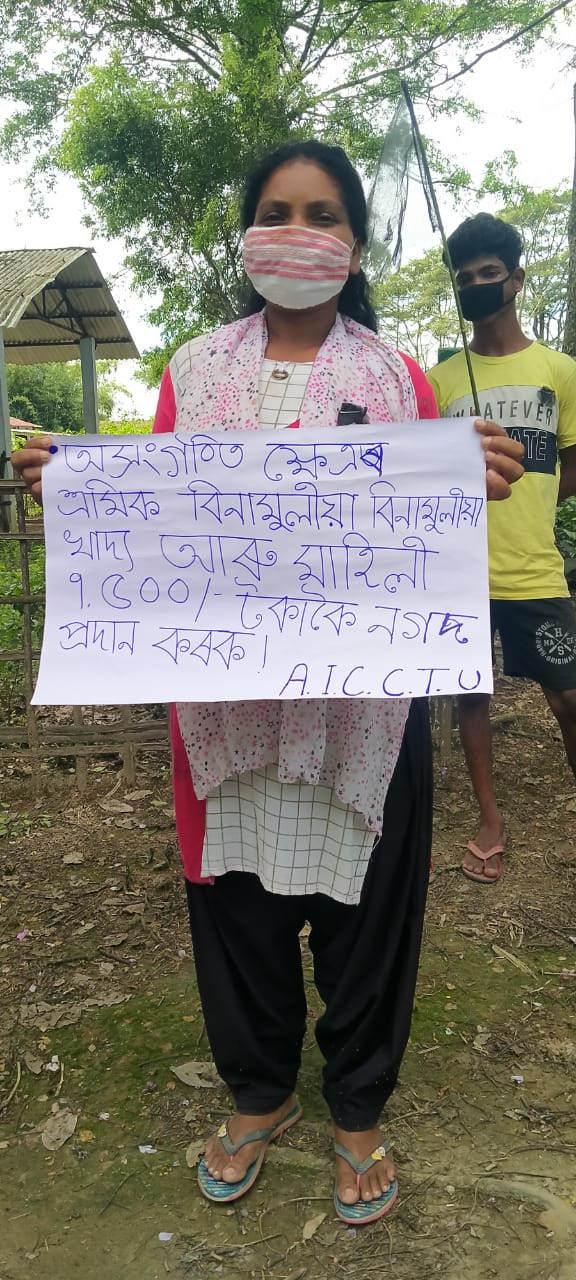 • অসংগঠিত ক্ষেত্ৰৰ
শ্ৰমিক বিনামুলীয়া বিনামুলীয়া
খাদ্য আৰু মাহিলী
৭.৫০০/- টকাকৈ নগদ
প্ৰদান কৰক!
A.I.C.C.T.U
WHATEVER
ATE